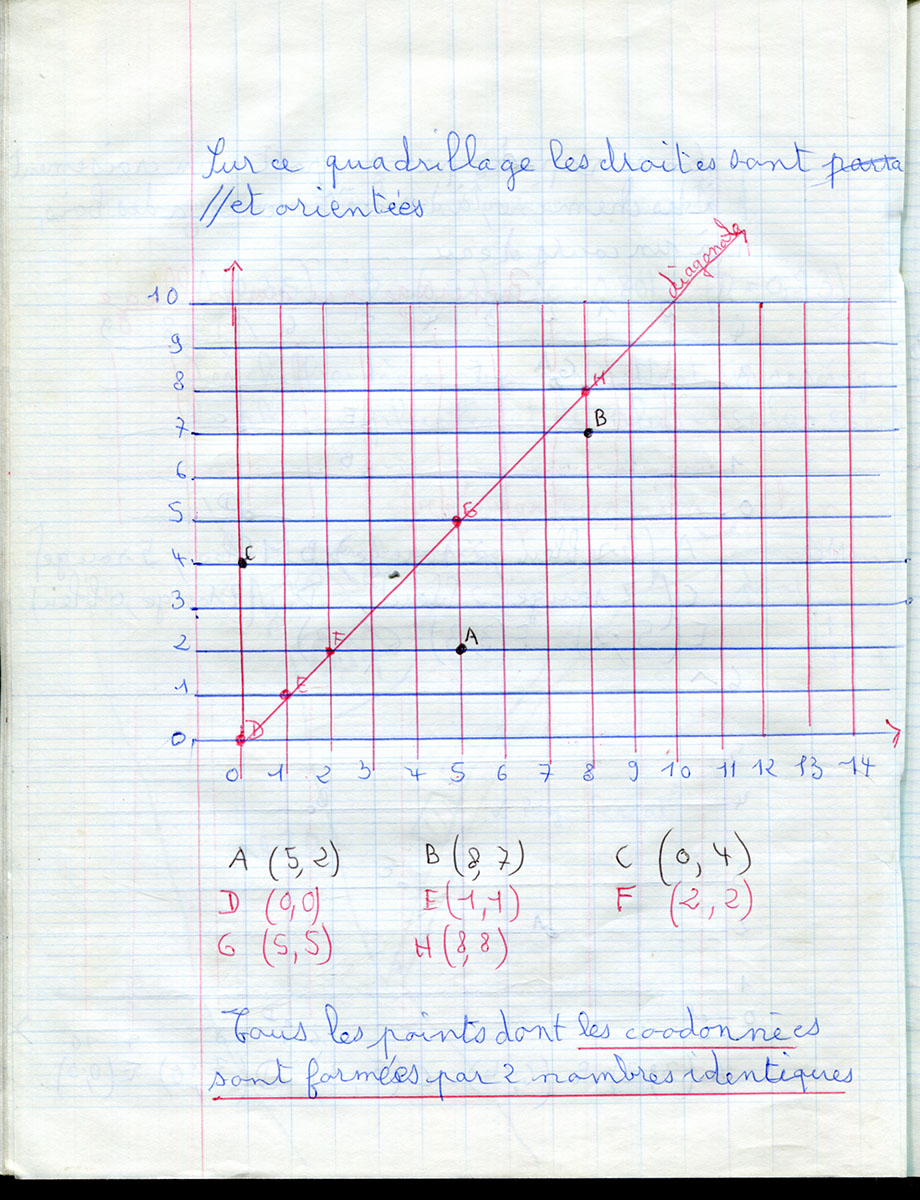 Sur ce quadrillage les droites sont para
// et orientées
diagonale
10
9
8
H
B
7
6
5
G
C
4
3
2
F
A
1
E
0
D
0 1 2 3 4 5 6 7 8 9 10 11 12 13 14
A (5,2) B (8,7) C (0,4)
D (0,0) E (1,1) F (2,2)
G (5,5) H (8,8)
Tous les points dont les coodonnées
sont formées par 2 nombres identiques